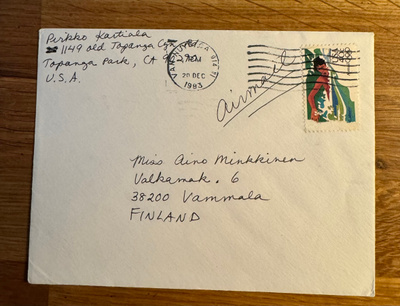 Pirkko Kartiala
1149 old Topanga Cyn
Topanga Park, CA
U.S.A.
VAN NUYS, CA
PM
20 DEC
1983
airmail
USA
Miss Aino Minkkinen
Valkamak. 6
38200 Vammala
FINLAND